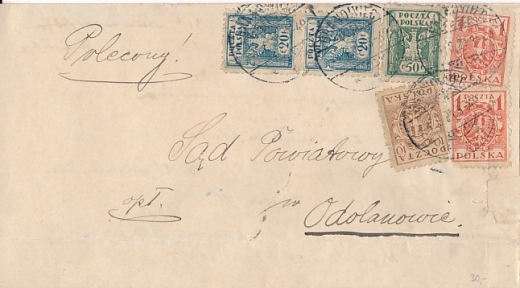 POCZTA
20
POLSKA
POCZTA
20
POLSKA
POCZTA
50
POLSKA
1
POLSKA
POCZTA
1
POLSKA
POCZTA
10
POLSKA
Polecony!
Sąd Powiatowy
opł. w
Odolanowie.
30,-